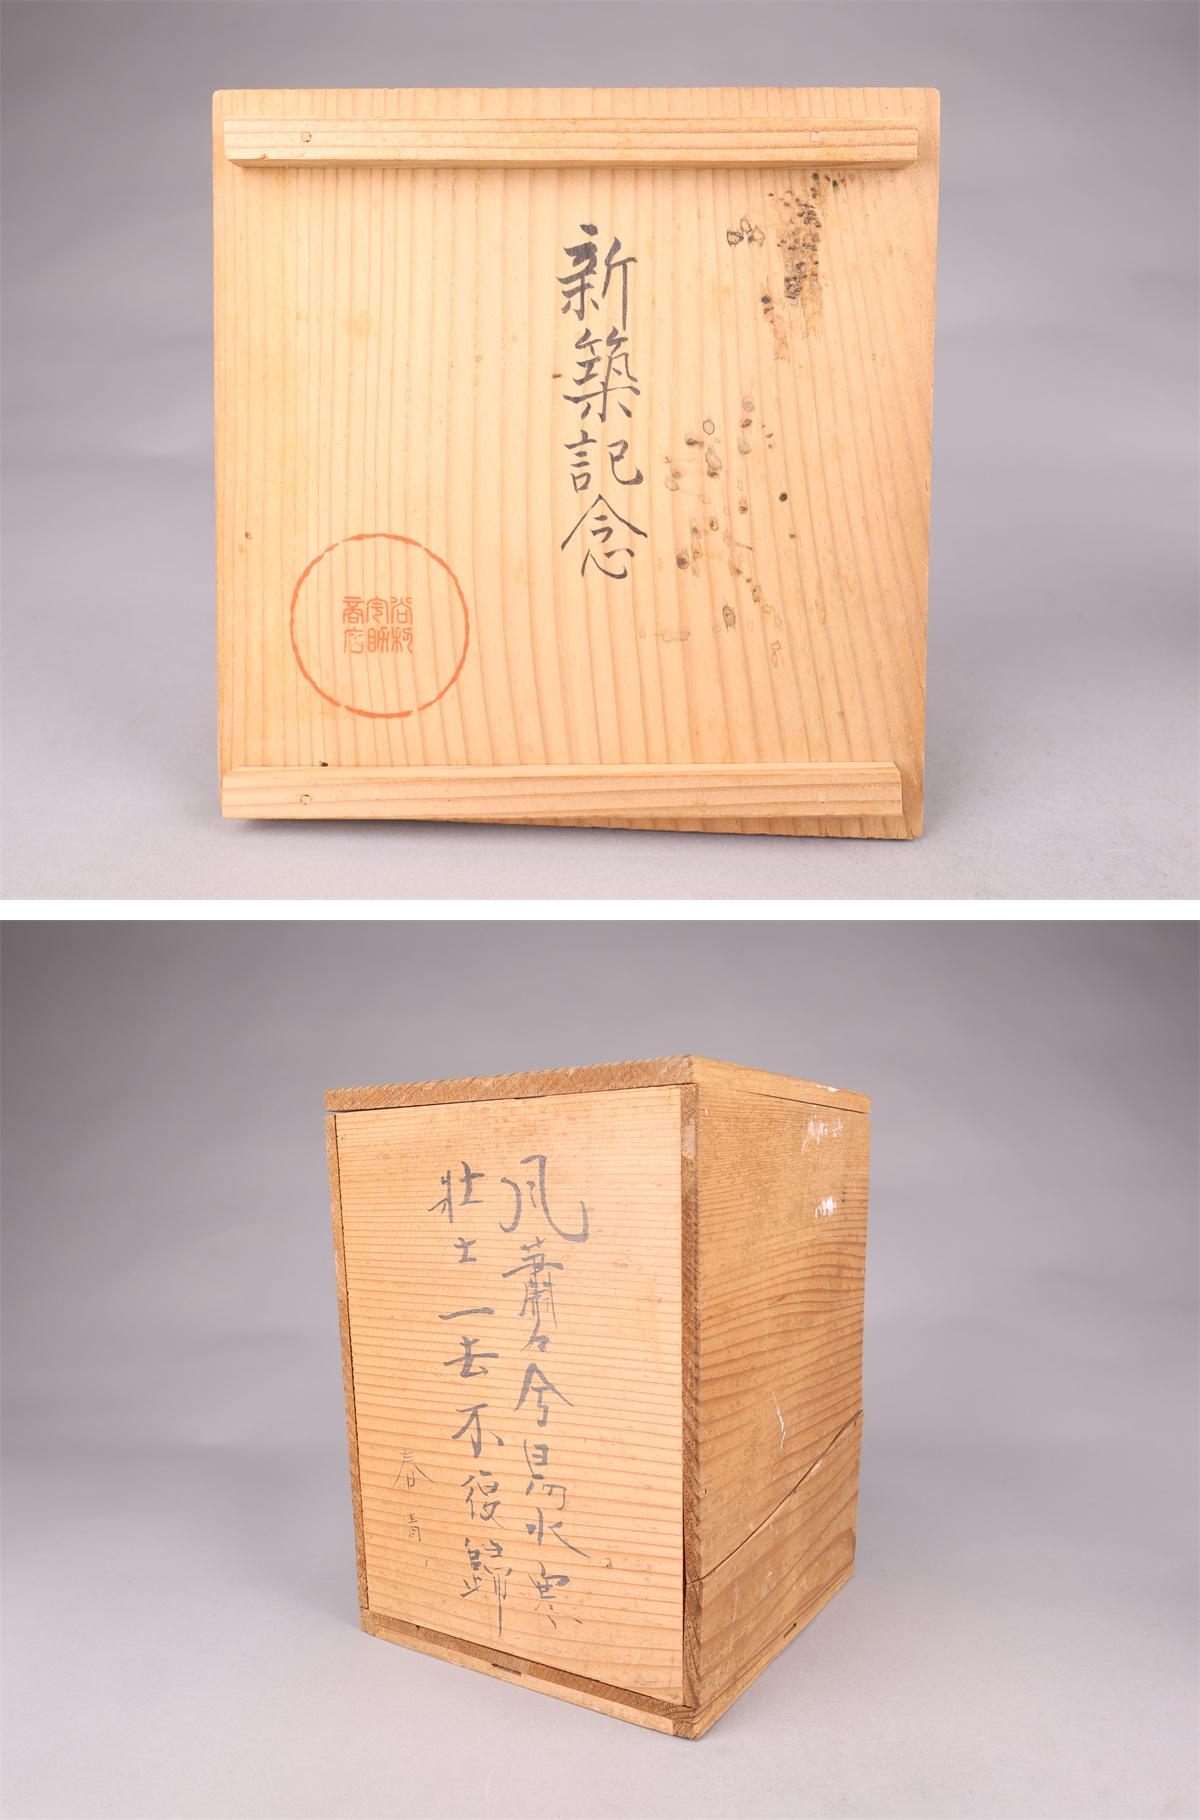 新築記念
商店
風蕭々兮易水寒
壮士一去不復歸
春青